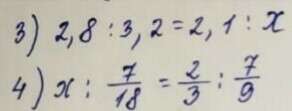 3) 2,8 : 3,2 = 2,1 : x
4) x : 7/18 = 2/3 : 7/9